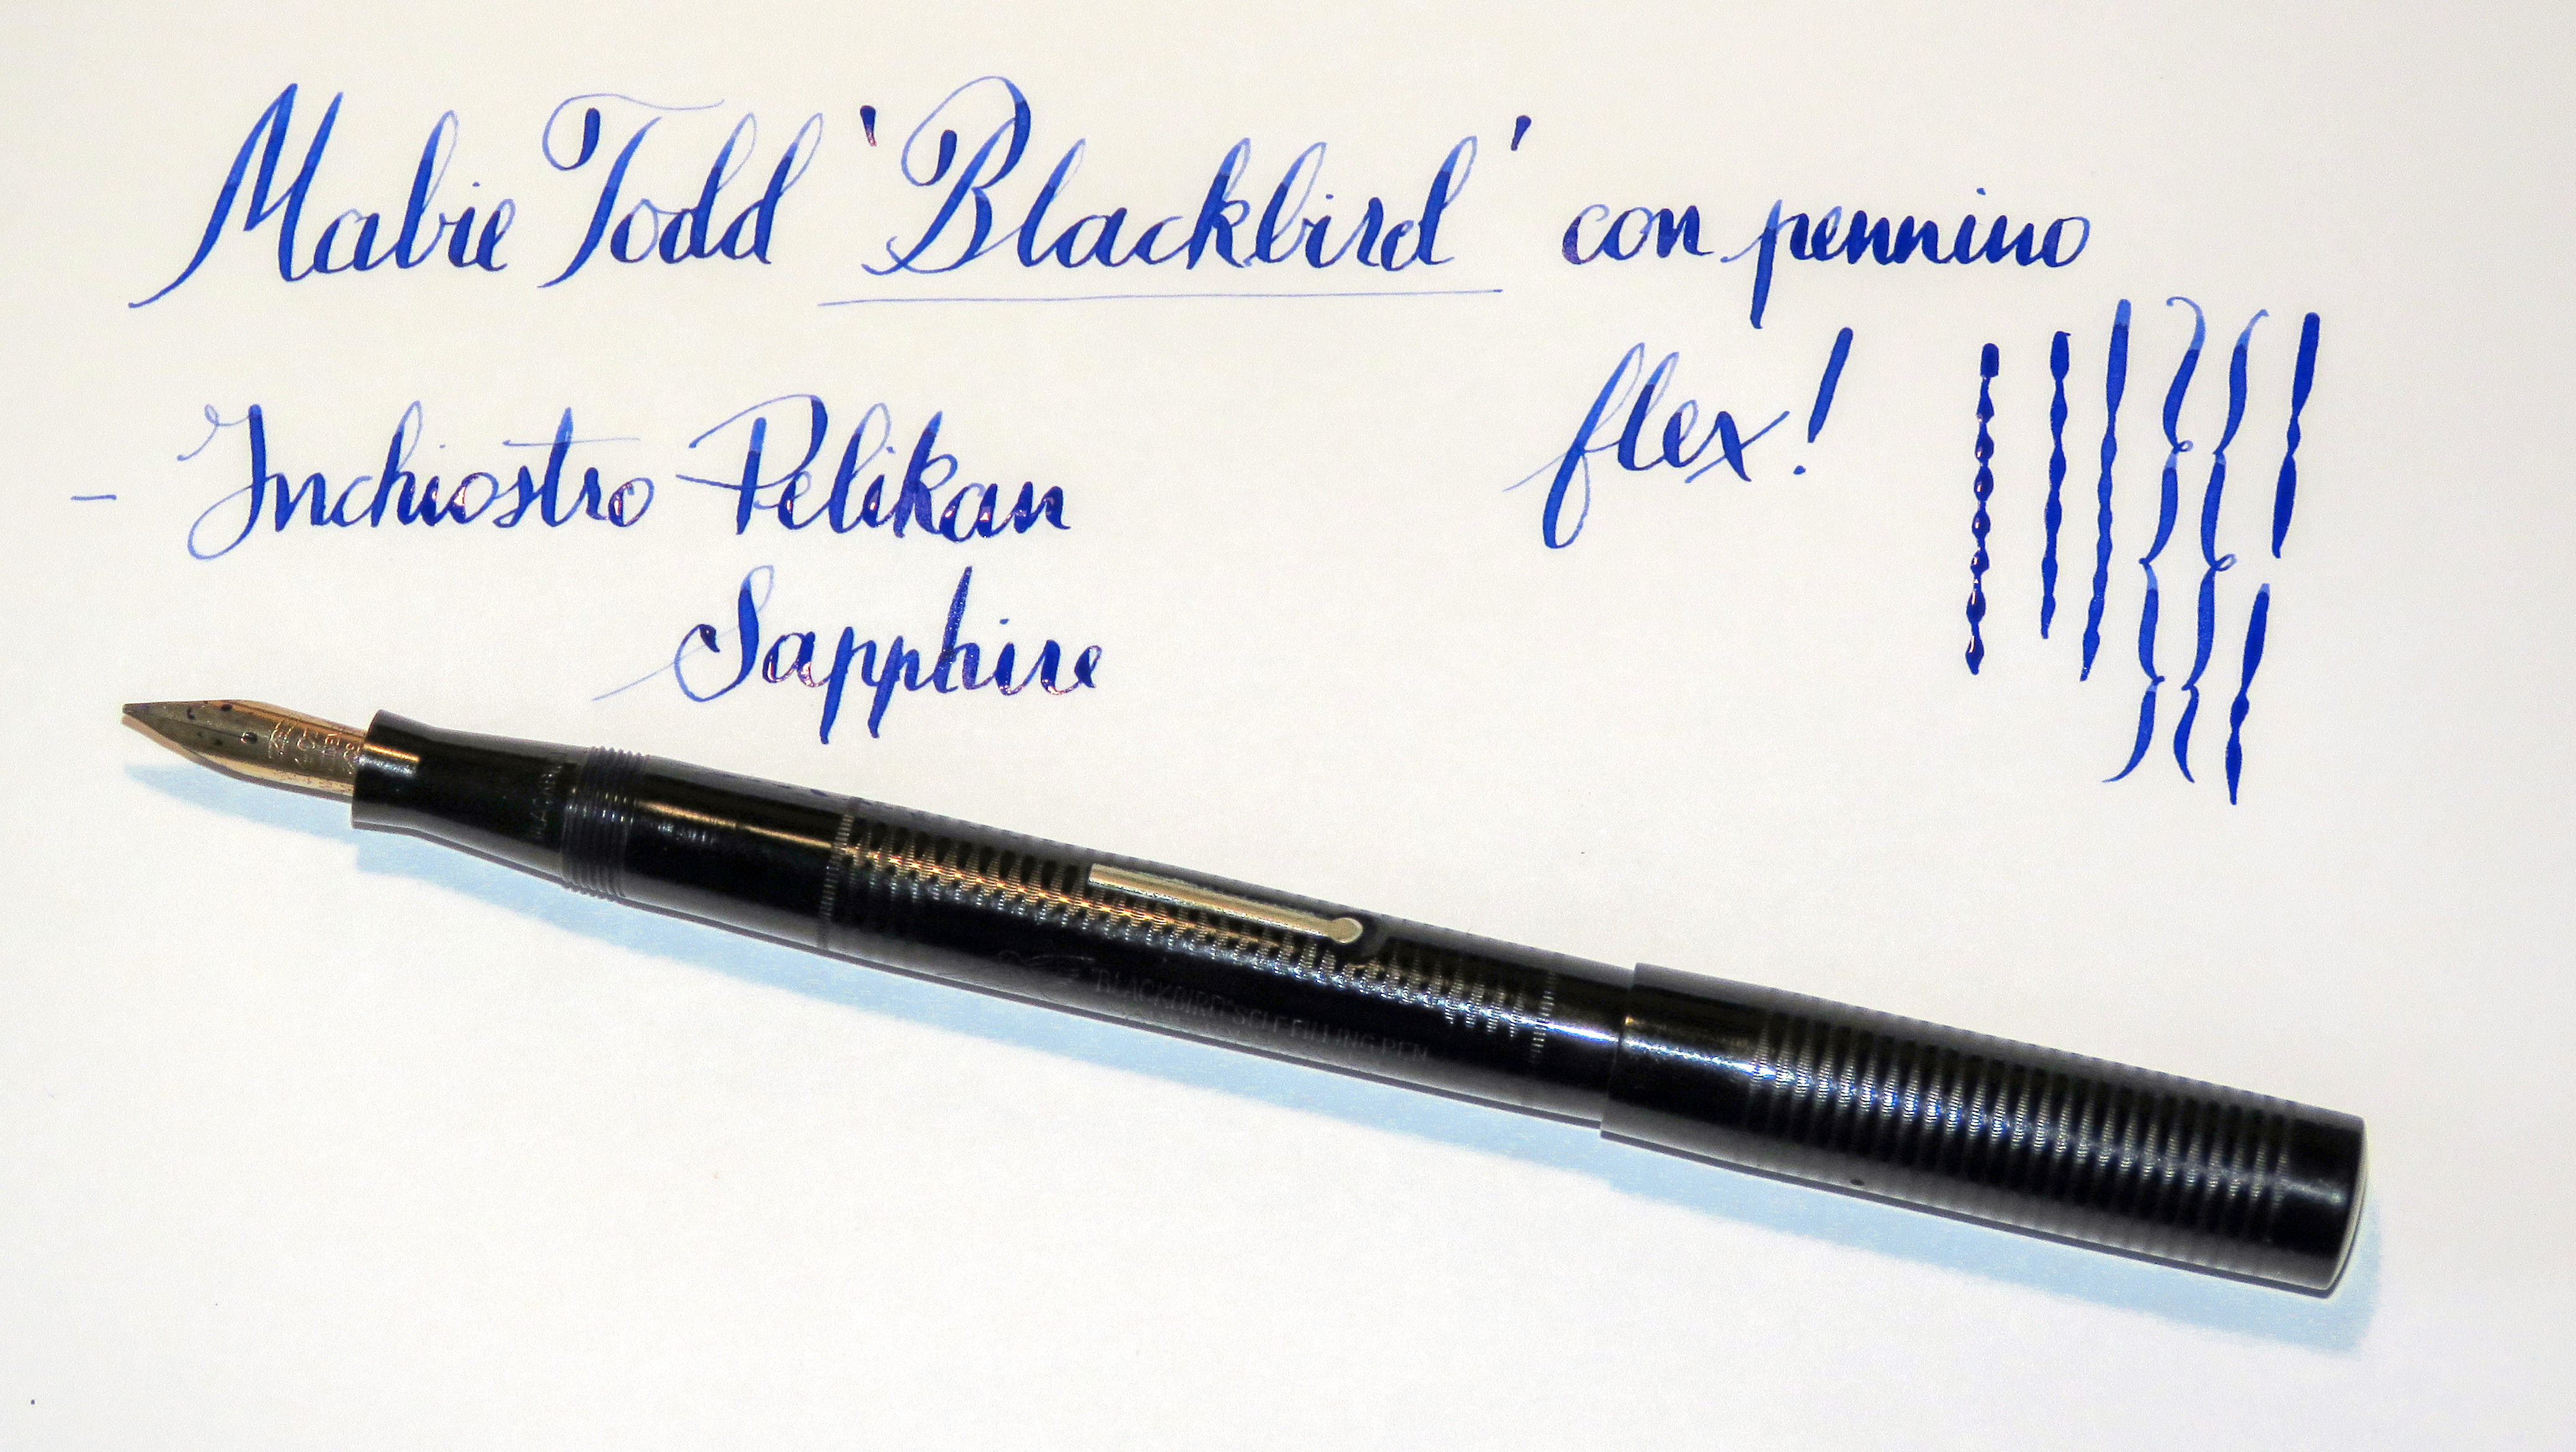 Mabie Todd 'Blackbird' con pennino
flex!
- Inchiostro Pelikan
Sapphire
"BLACKBIRD" SELF FILLING PEN